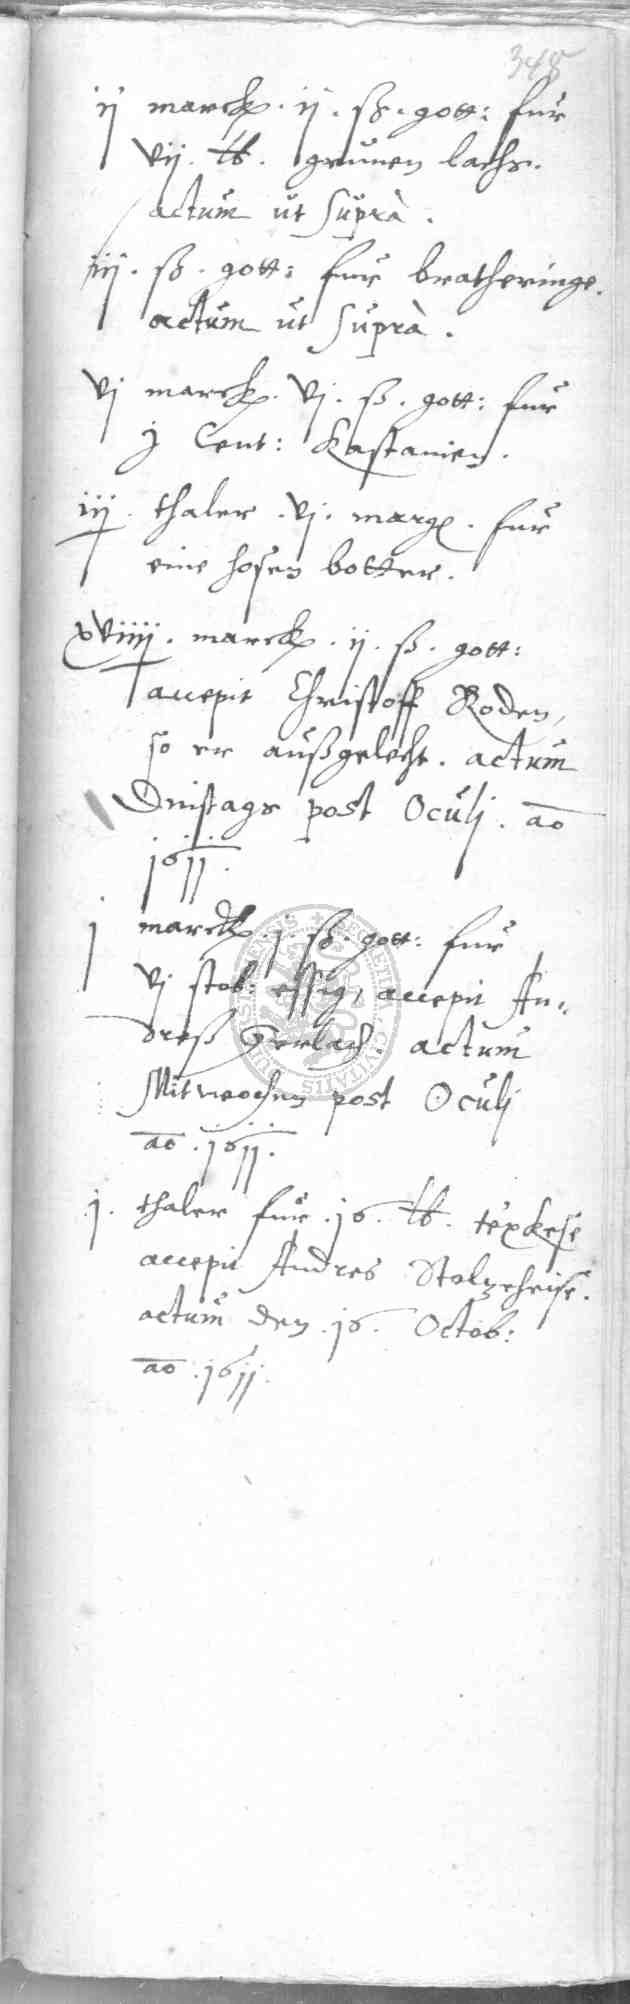 348
ij marck. ij. ß. gott: fur
vij. lb. grunen lachs.
actum ut Suprà.
iij. ß. gott: fur bratheringe.
actum ut Suprà.
vj marck. vj. ß. gott: fur
j Cent: Kastanien.
iij. thaler. vj. marg. fur
eine hosen botter.
xviiij. marck. ij. ß. gott:
accepit Christoff Roden,
so er außgelecht. actum
Dinstags post Oculj. ao
1611.
j marck. j. ß. gott: fur
vj stob: essig, accepit An-
dreß Gerlach. actum
Mitwochen post Oculj
ao. 1611.
j. thaler fur. 16. lb. texkese
accepit Andres Stoltzeheise.
actum den. 16. Octob:
ao. 1611.
SECRETUM CIVITATIS